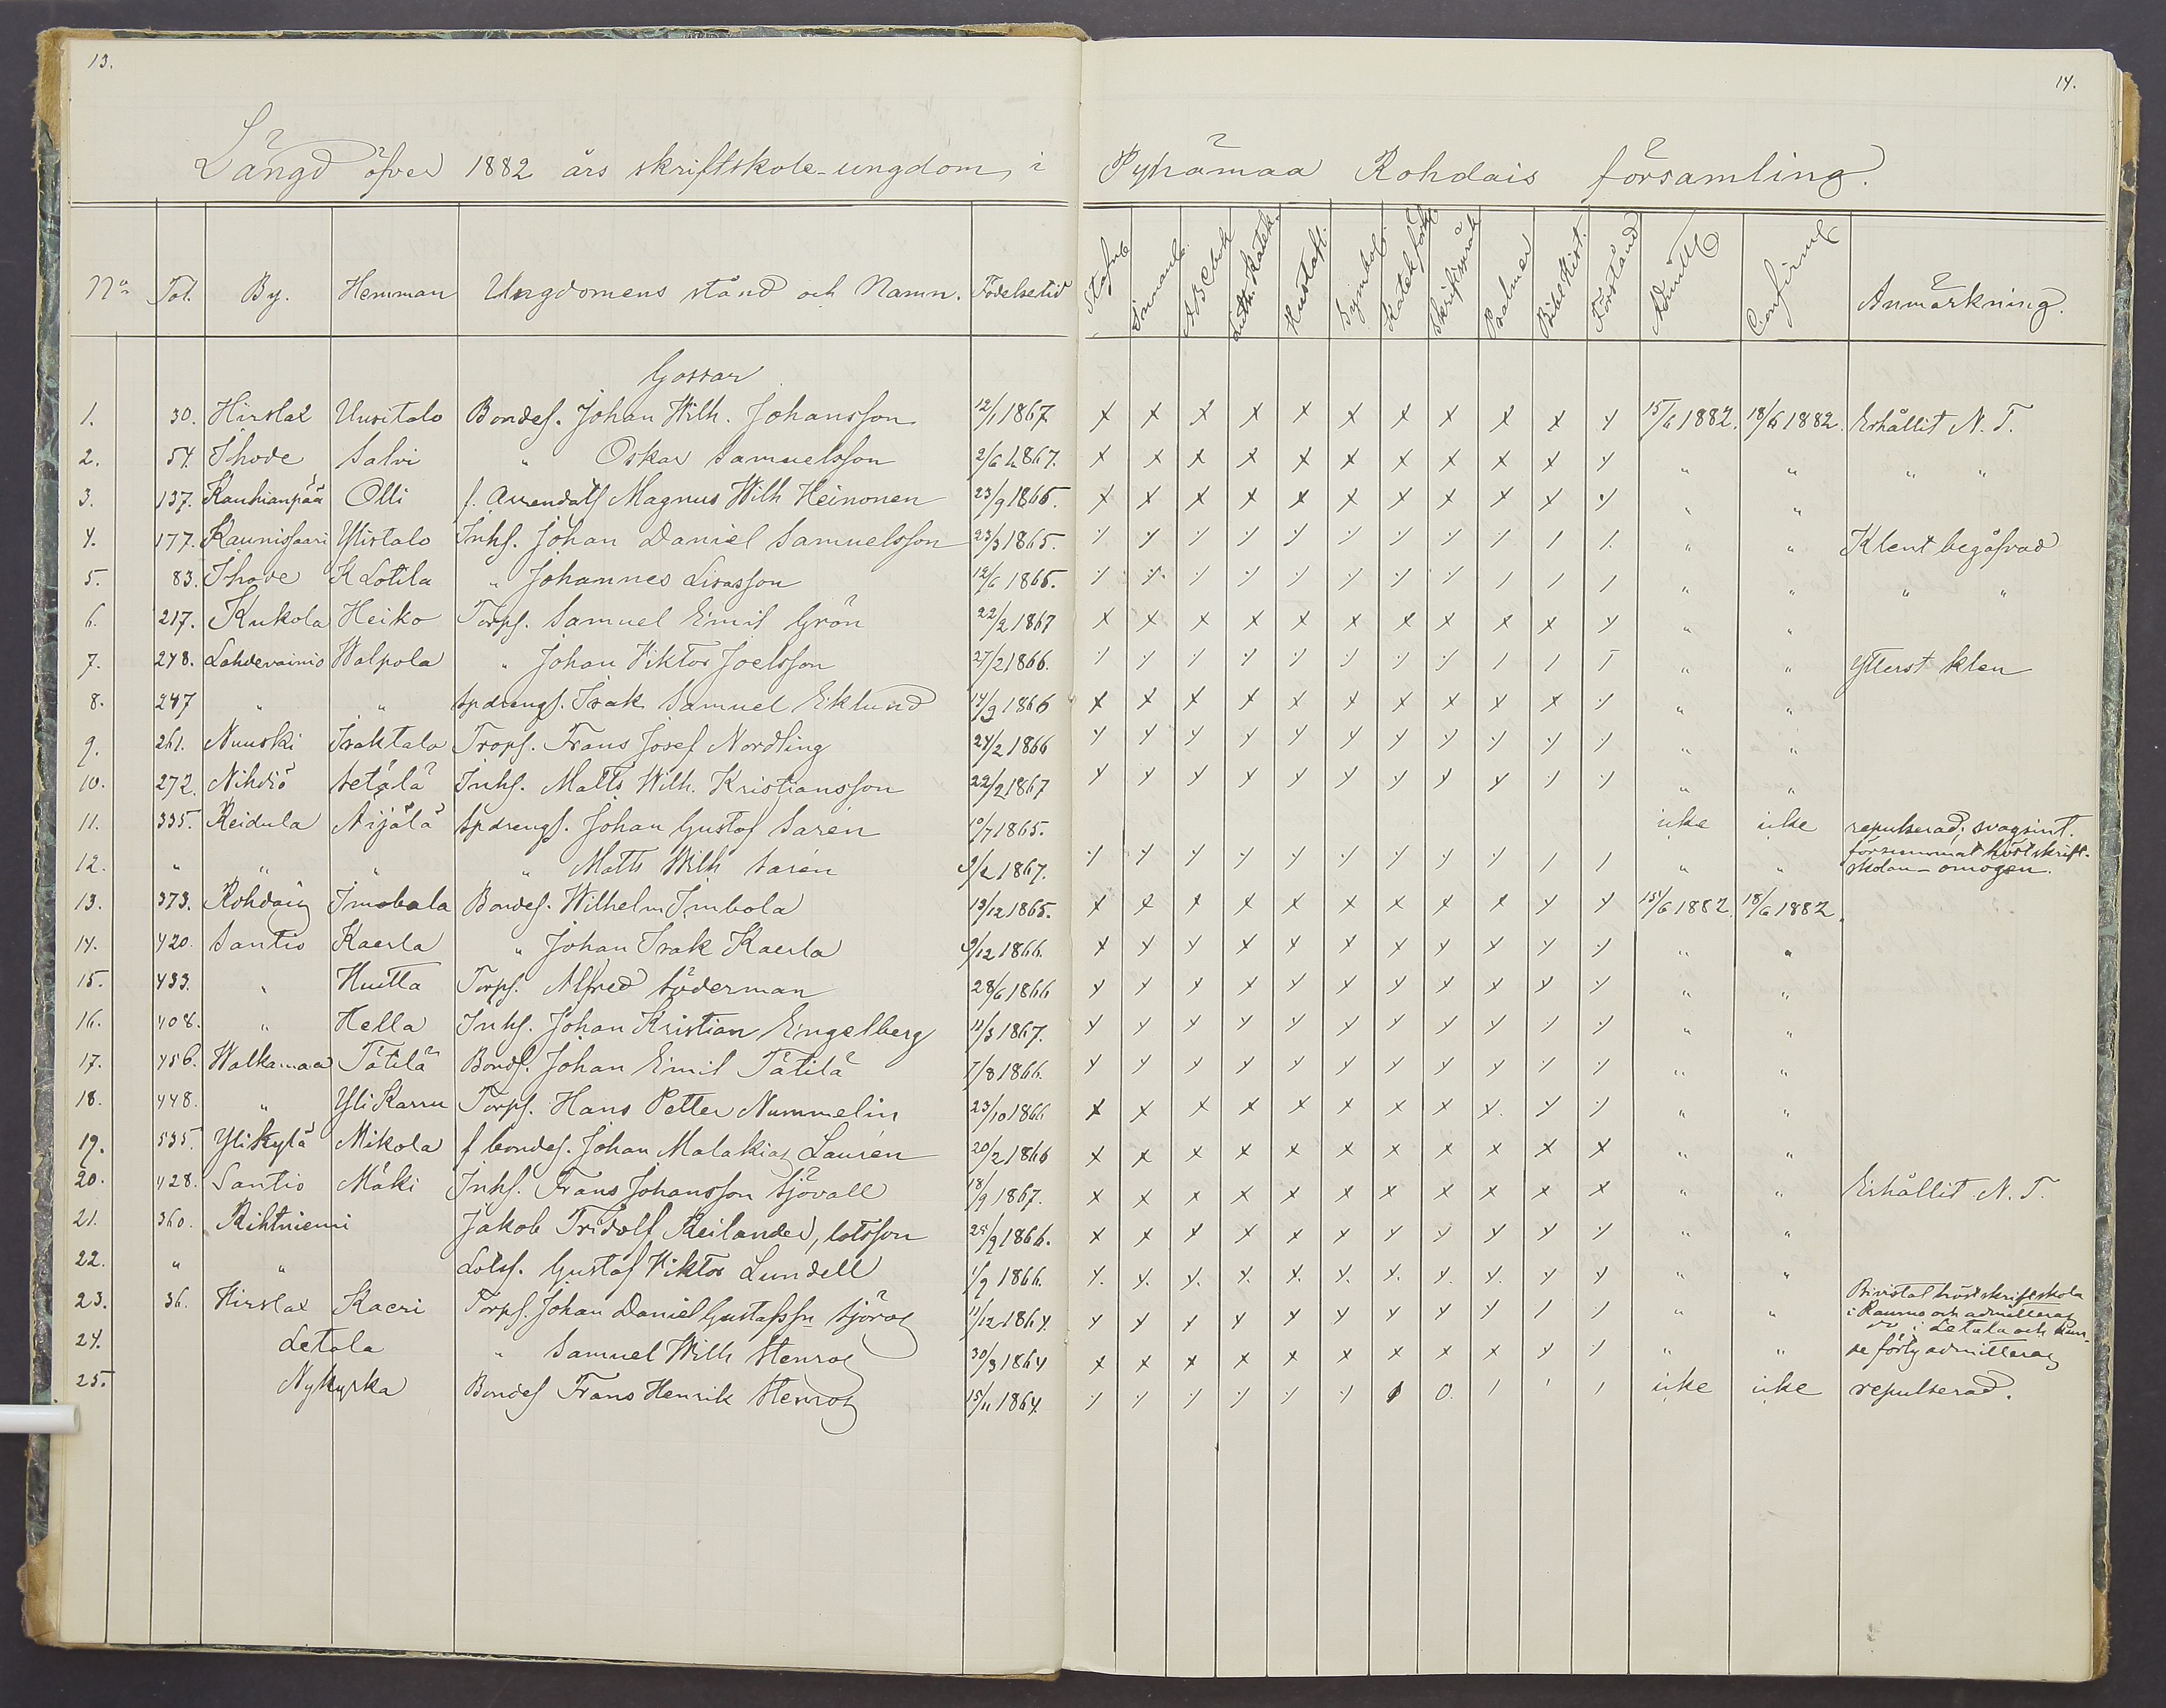 13.
14.
Längd öfver 1882 års skriftskole-ungdom i Pyhämaa Rohdais församling.
No Fol. By. Hemman Ungdomens stånd och Namn. Födelsetid Stafn. Innanl. ABCbok Luth. Katek. Hustafl. Symbol. Katek.förkl. Skriftspråk Psalmer Bibl. Hist. Förstånd Admitt. Confirm. Anmärkning.
Gossar
1. 30. Hirslax Uusitalo Bondes. Johan Wilh. Johansson 12/1 1867 x x x x x x x x x x y 15/6 1882. 18/6 1882. Erhållit N. T.
2. 54. Ihode Salvi " Oskar Samuelsson 2/6 1867. x x x x x x x x x x y " " " "
3. 137. Kauhianpää Olli f. Arrendats Magnus Wilh Heinonen 23/9 1866. x x x x x x x x x y ⁒ " "
4. 177. Kaunissaari Ylistalo Inhs. Johan Daniel Samuelsson 23/3 1865. ⁒ y ⁒ ⁒ ⁒ ⁒ ⁒ ⁒ ⁒ / /. " " Klent begåfvad
5. 83. Ihode K Lotila " Johannes Lisasson 12/6 1865. ⁒ ⁒ ⁒ ⁒ ⁒ ⁒ ⁒ ⁒ / / / " " " "
6. 217. Kukola Heiko Torps. Samuel Emil Grön 22/2 1867 x x x x x x x x x x y " "
7. 248. Lahdevainio Walpola " Johan Viktor Joelsson 27/2 1866. ⁒ ⁒ ⁒ ⁒ ⁒ ⁒ ⁒ ⁒ / / / " " Ytterst klen
8. 247 " " Spdrengs. Isak Samuel Eklund 14/9 1866 x x x x x x x x x x ⁒ " "
9. 261. Nuuski Isaktalo Trops. Frans Josef Nordling 24/2 1866 y y y y y y y y ⁒ ⁒ ⁒ " "
10. 272. Nihdiö Setälä Inhs. Matts Wilh. Kristiansson 22/2 1867 y y y y y y y y y ⁒ ⁒ " "
11. 335. Reidula Äijälä Spdrengs. Johan Gustaf Sarén 10/7 1865. icke icke repulserad; svagsint.
12. " " " " Matts Wilh Sarén 9/2 1867. ⁒ y y y y ⁒ y y ⁒ / / " " försummat höstskrift-
skolan - omogen.
13. 373. Rohdais Imobala Bondes. Wilhelm Imbola 13/12 1865. x x x x x x x x x y y 15/6 1882. 18/6 1882.
14. 420. Santio Kaerla " Johan Isak Kaerla 9/12 1866. x y y x x x x y y y ⁒ " "
15. 433. " Huitta Torps. Alfred Söderman 28/6 1866 y y y y y y y y y y ⁒ " "
16. 408. " Hella Inhs. Johan Kristian Engelberg 12/3 1867. y y y y y y y y y ⁒ ⁒ " "
17. 456. Walkamaa Tätilä Bonds. Johan Emil Tätilä 7/8 1866. y y y y y y y y y ⁒ ⁒ " "
18. 448. " Yli Karru Torps. Hans Petter Nummelin 23/10 1866 x x x x x x x x x. y ⁒ " "
19. 535. Ylikylä Mikola f bondes. Johan Malakias Laurén 20/2 1866 x x x x x x x x x x x " "
20. 428. Santio Mäki Inhs. Frans Johansson Sjövall 18/9 1867. x x x x x x x x x x x " " Erhållit N. T.
21. 360. Rihtniemi Jakob Fridolf Reilander, lotsson 25/9 1866. x x x x x y y y y y ⁒ " "
22. " " Lotss. Gustaf Viktor Lundell 1/9 1866. y. y. y. y. y. y. y. y. y. y y " "
23. 36. Hirslax Kaeri Torps. Johan Daniel Gustafssn Sjöros 11/12 1864. y y y y y y y y y / / " " Bivistat höstskriftskola
i Raumo och admitteras
24. Letala " Samuel Wilh Stenros 30/3 1864 x x x x x x x x x y ⁒ " " do i Letala och kun-
de förty admitteras
25. Nykyrka Bondes Frans Henrik Stenros 15/11 1864. ⁒ ⁒ ⁒ ⁒ ⁒ ⁒ 0 0. / ' / icke icke repulserad.